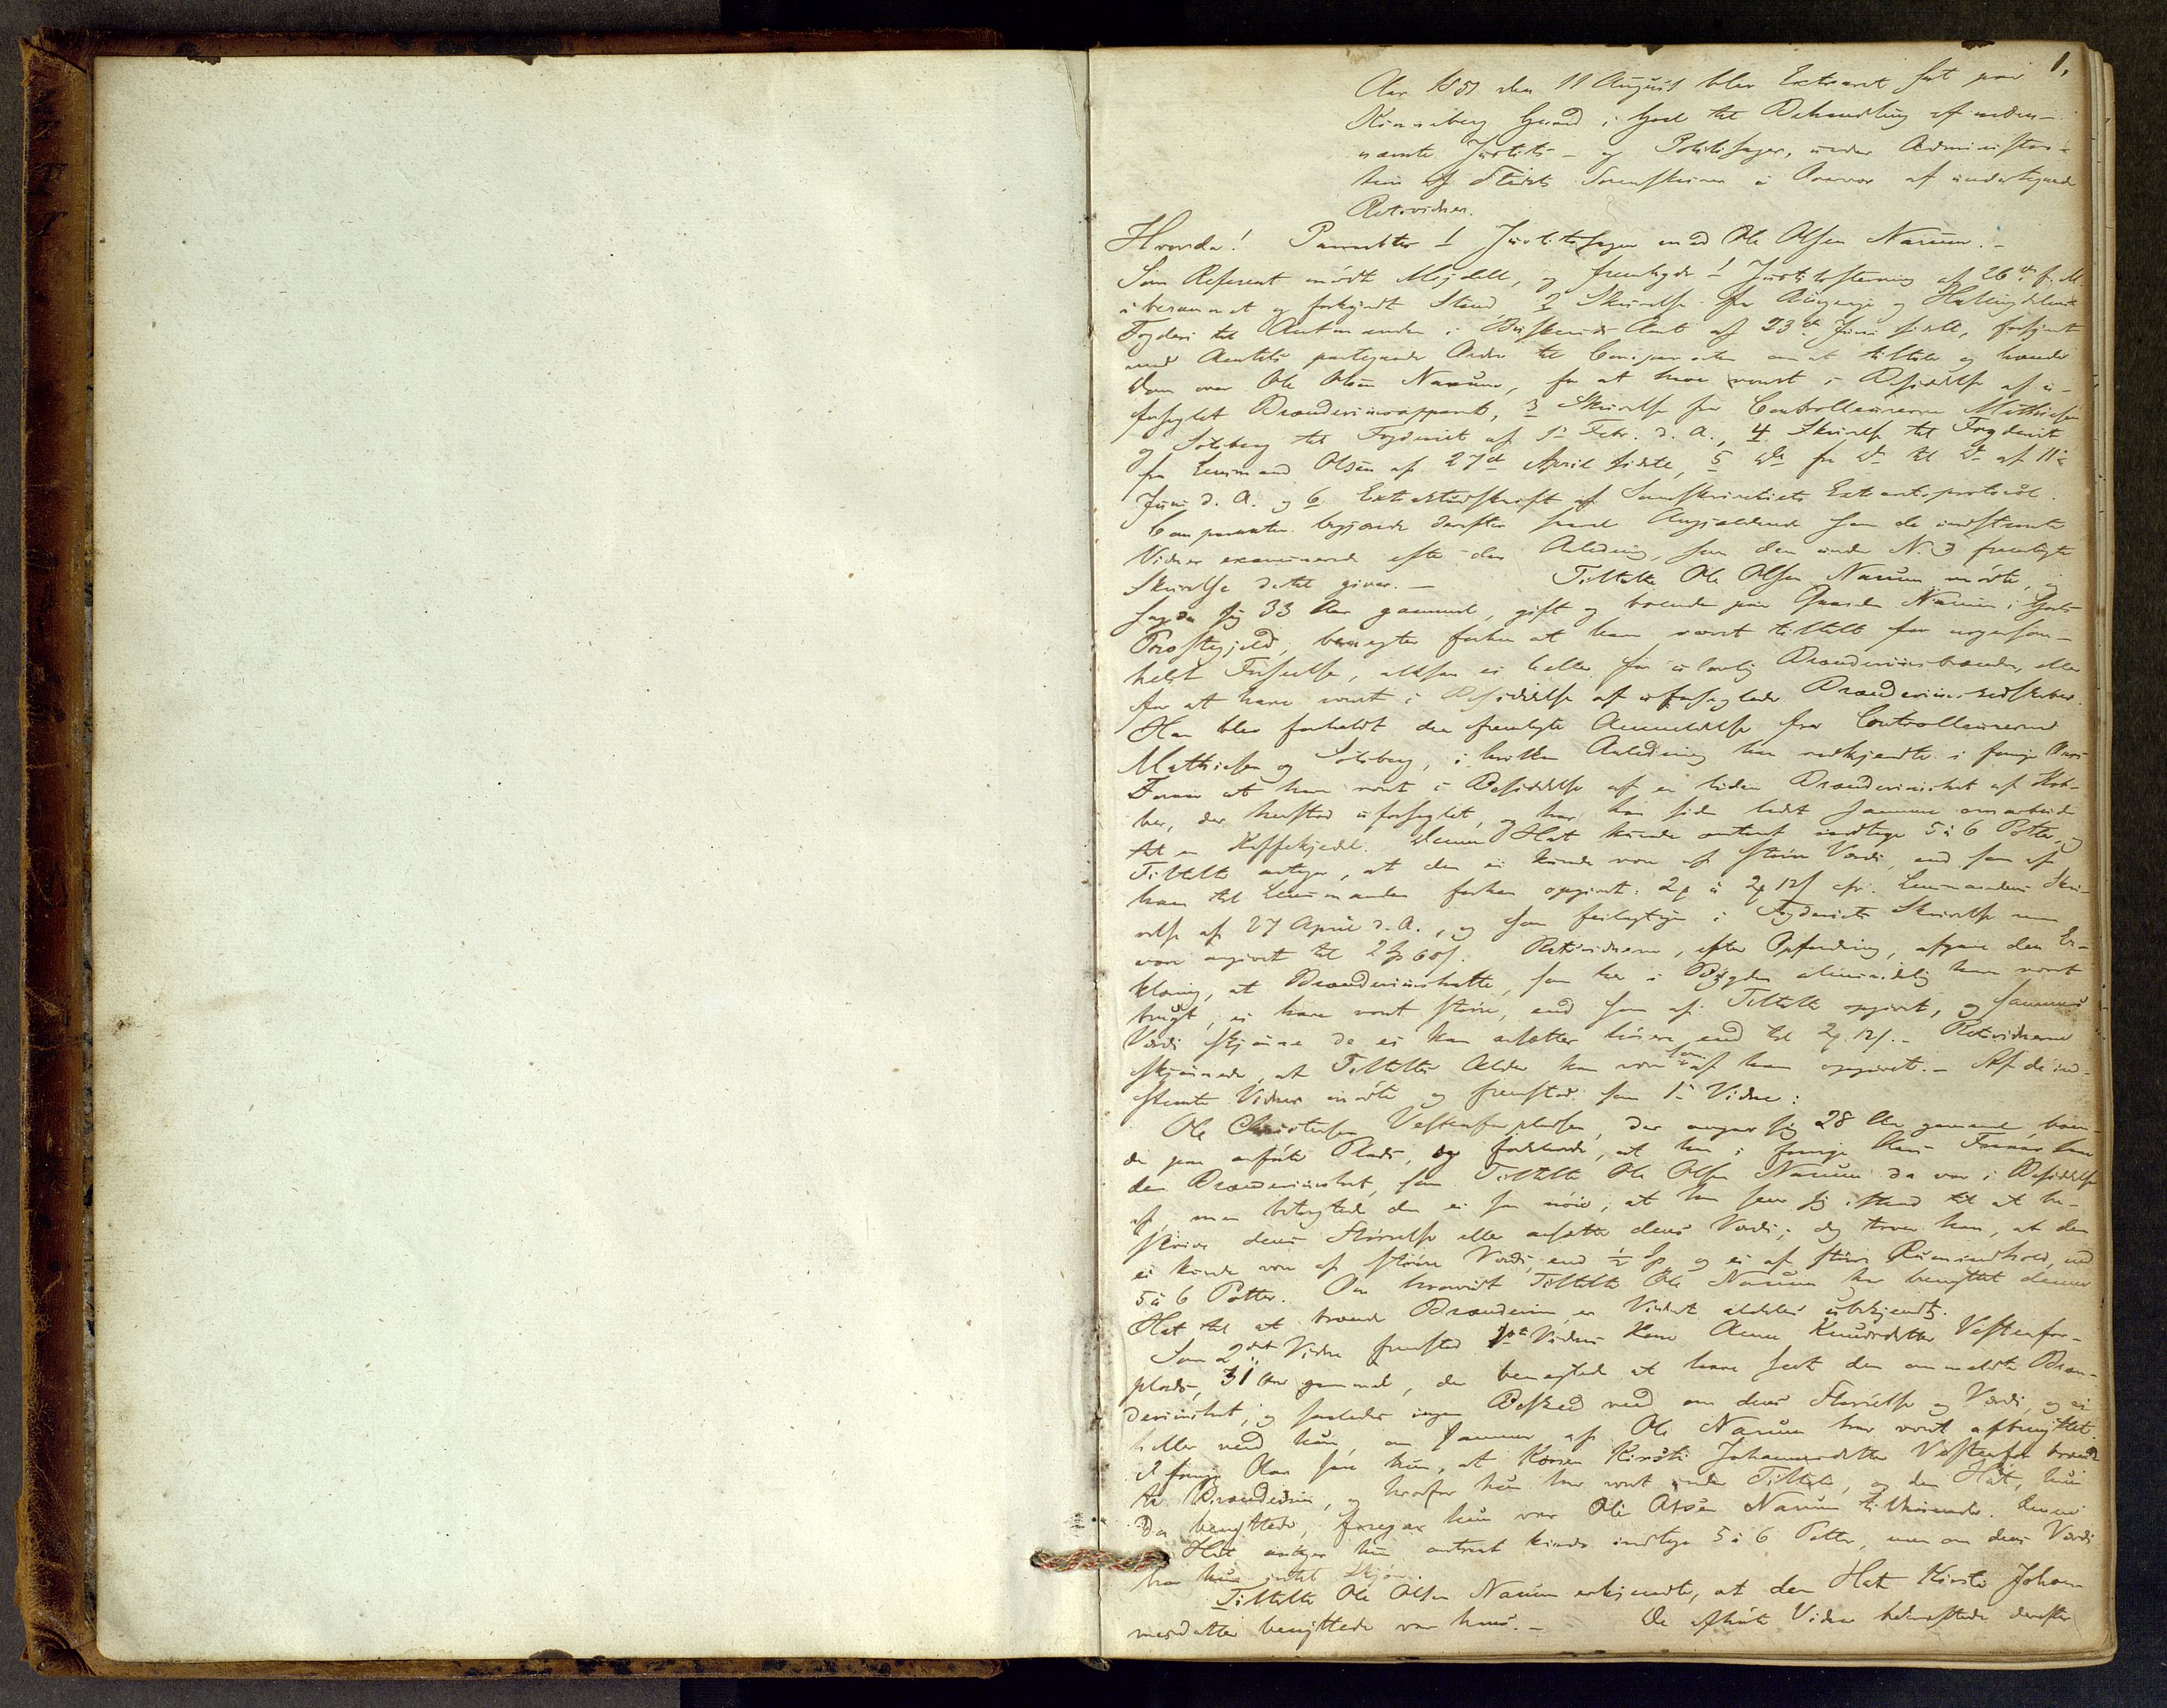 1.
Aar 1851 den 11 August blev Extraret sat paa
Kinneberg Gaard i Gool til Behandling af neden-
nævnte Justits- og Politisager, under Administra-
tion af Stedets Sorenskriver i Overvær af undertegnede
Retsvidner.
Hvorda! Paaraabtes 1 Justitssagen mod Ole Olsen Narum.-
Som Referent mødte Mejdell, og fremlagde 1 Justitsstevning af 26de f. M.
i beramet og forkyndt Stand 2 Skrivelse fra Ringerige og Hallingdals
Fogderi til Amtmanden i Buskeruds Amt af 23de Juni sidstl., forsynet
med Amtets paategnede Ordre til Comparenten om at tiltale og hænde
Dom over Ole Olsen Narum, for at have været i Besiddelse af u-
forseglet Brænderiapparat, 3 Skrivelse fra Controlleurerne Mathiesen
og Solberg til Fogderiet af 1ste Febr. d. A., 4 Skrivelse til Fogderiet
fra Lensmand Olsen af 27de April sidstl., 5 Do fra Do til Do af 11te
Juni d. A. og 6 Extraktudskrift af Sorenskriveriets Extraretsprotocol.
Comparenten begjærede derefter saavel Angjældende som de indstevnte
Vidner examinerede efter den Anledning, som den under No 3 fremlagte
Skrivelse dertil giver.- Tiltalte Ole Olsen Narum mødte, og
sagde sig 33 Aar gammel, gift og boende paa Gaarden Narum i Gools
Præstegjeld, benægter forhen at have været tiltalt for nogensom-
helst Forseelse, altsaa ei heller for ulovlig Brændeviinsbrænden, eller
for at have været i Besiddelse af uforseglede Brændeviinsredskaber.
Han blev foreholdt den fremlagte Anmeldelse fra Controlleurerne
Mathiesen og Solberg, i hvilken Anledning han vedkjendte i forrige Aars
Foraar at have været i Besiddelse af en liden Brændeviinshat af Kob-
ber, der henstod uforseglet, og har han siden ladt samme omarbeide
til en Kaffekjedel. Denne Hat kunde omtrent indtage 5 à 6 Potter, og
Tiltalte antager, at den ei kunde være af større Værdi, end som af
ham til Lensmanden forhen opgivet. 2 à 2 12 cfr. Lensmandens Skri-
velse af 27 April d. A., og som feilagtigen i Fogderiets Skrivelse
være angivet til 2 60. Retsvidnerne, efter Opfordring, afgave den Er-
klæring, at Brændeviinshatte, som her i Bygden almindelig have været
brugt, ei have været større, end som af Tiltalte opgivet, og sammes
Værdi skjønne de ei kan ansættes høiere end til 2 12.- Retsvidnerne
skjønnede, at Tiltaltes Alder kan være som af ham opgivet.- Af de ind-
stevnte Vidner mødte og fremstod som 1ste Vidne:
Ole Christensen Vestenforpladsen, der angav sig 28 Aar gammel, boen-
de paa anførte Plads, og forklarede, at han i forrige Aars Foraar saae
den Brændeviinshat, som Tiltalte Ole Olsen Narum da var i Besiddelse
af, men betragtede den ei saa nøie, at han seer sig istand til at be-
skrive dens Størrelse eller ansætte dens Værdi; dog troer han, at den
ei kunde være af større Værdi, end ½ og ei af større Rumindhold, end
5 à 6 Potter. Om hvorvidt Tiltalte Ole Narum har benyttet denne
Hat til at brænde Brændeviin, er Vidnet aldeles ubekjendt.
Som 2det Vidne fremstod 1ste Vidnes Kone Anne Knudsdatter Vestenfor-
plads, 31 Aar gammel, der benægtede at have seet den ommeldte Bræn-
deviinshat, og saaledes ingen Besked veed om dens Størrelse og Værdi, og ei
heller veed hun, om samme af Ole Narum har været afbenyttet.
I forrige Aar saae hun, at Konen Kirsti Johannesdatter Vestenfor brænd-
te Brændeviin, og hvorfor hun har været under Tiltale, og den Hat, hun
da benyttede, foregav hun var Ole Olsen Narum tilhørende. Denne
Hat antager hun omtrent kunde indtage 5 à 6 Potter, men om dens Værdi
har hun intet Skjøn.
Tiltalte Ole Olsen Narum erkjendte, at den Hat Kirsti Johan-
nesdatter benyttede var hans.- De afhørte Vidner bekræftede derefter